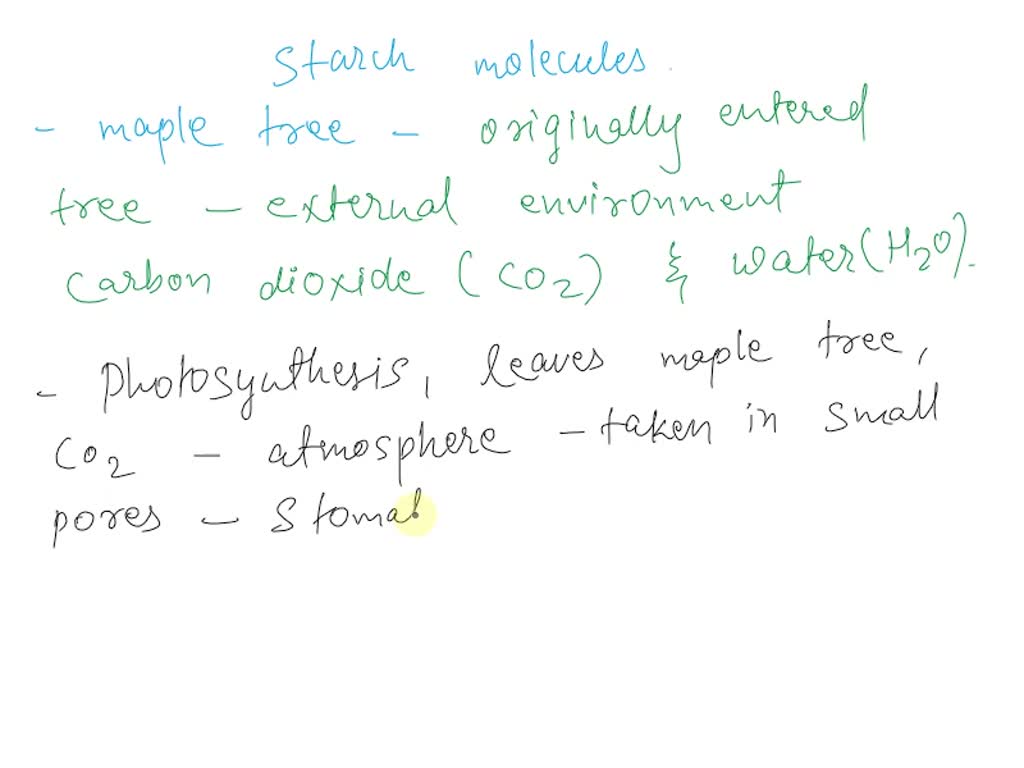 Starch molecules.
- maple tree - originally entered
tree - external environment
carbon dioxide (CO2) & water (H2O).
- Photosynthesis, leaves maple tree,
CO2 - atmosphere - taken in small
pores - Stomat